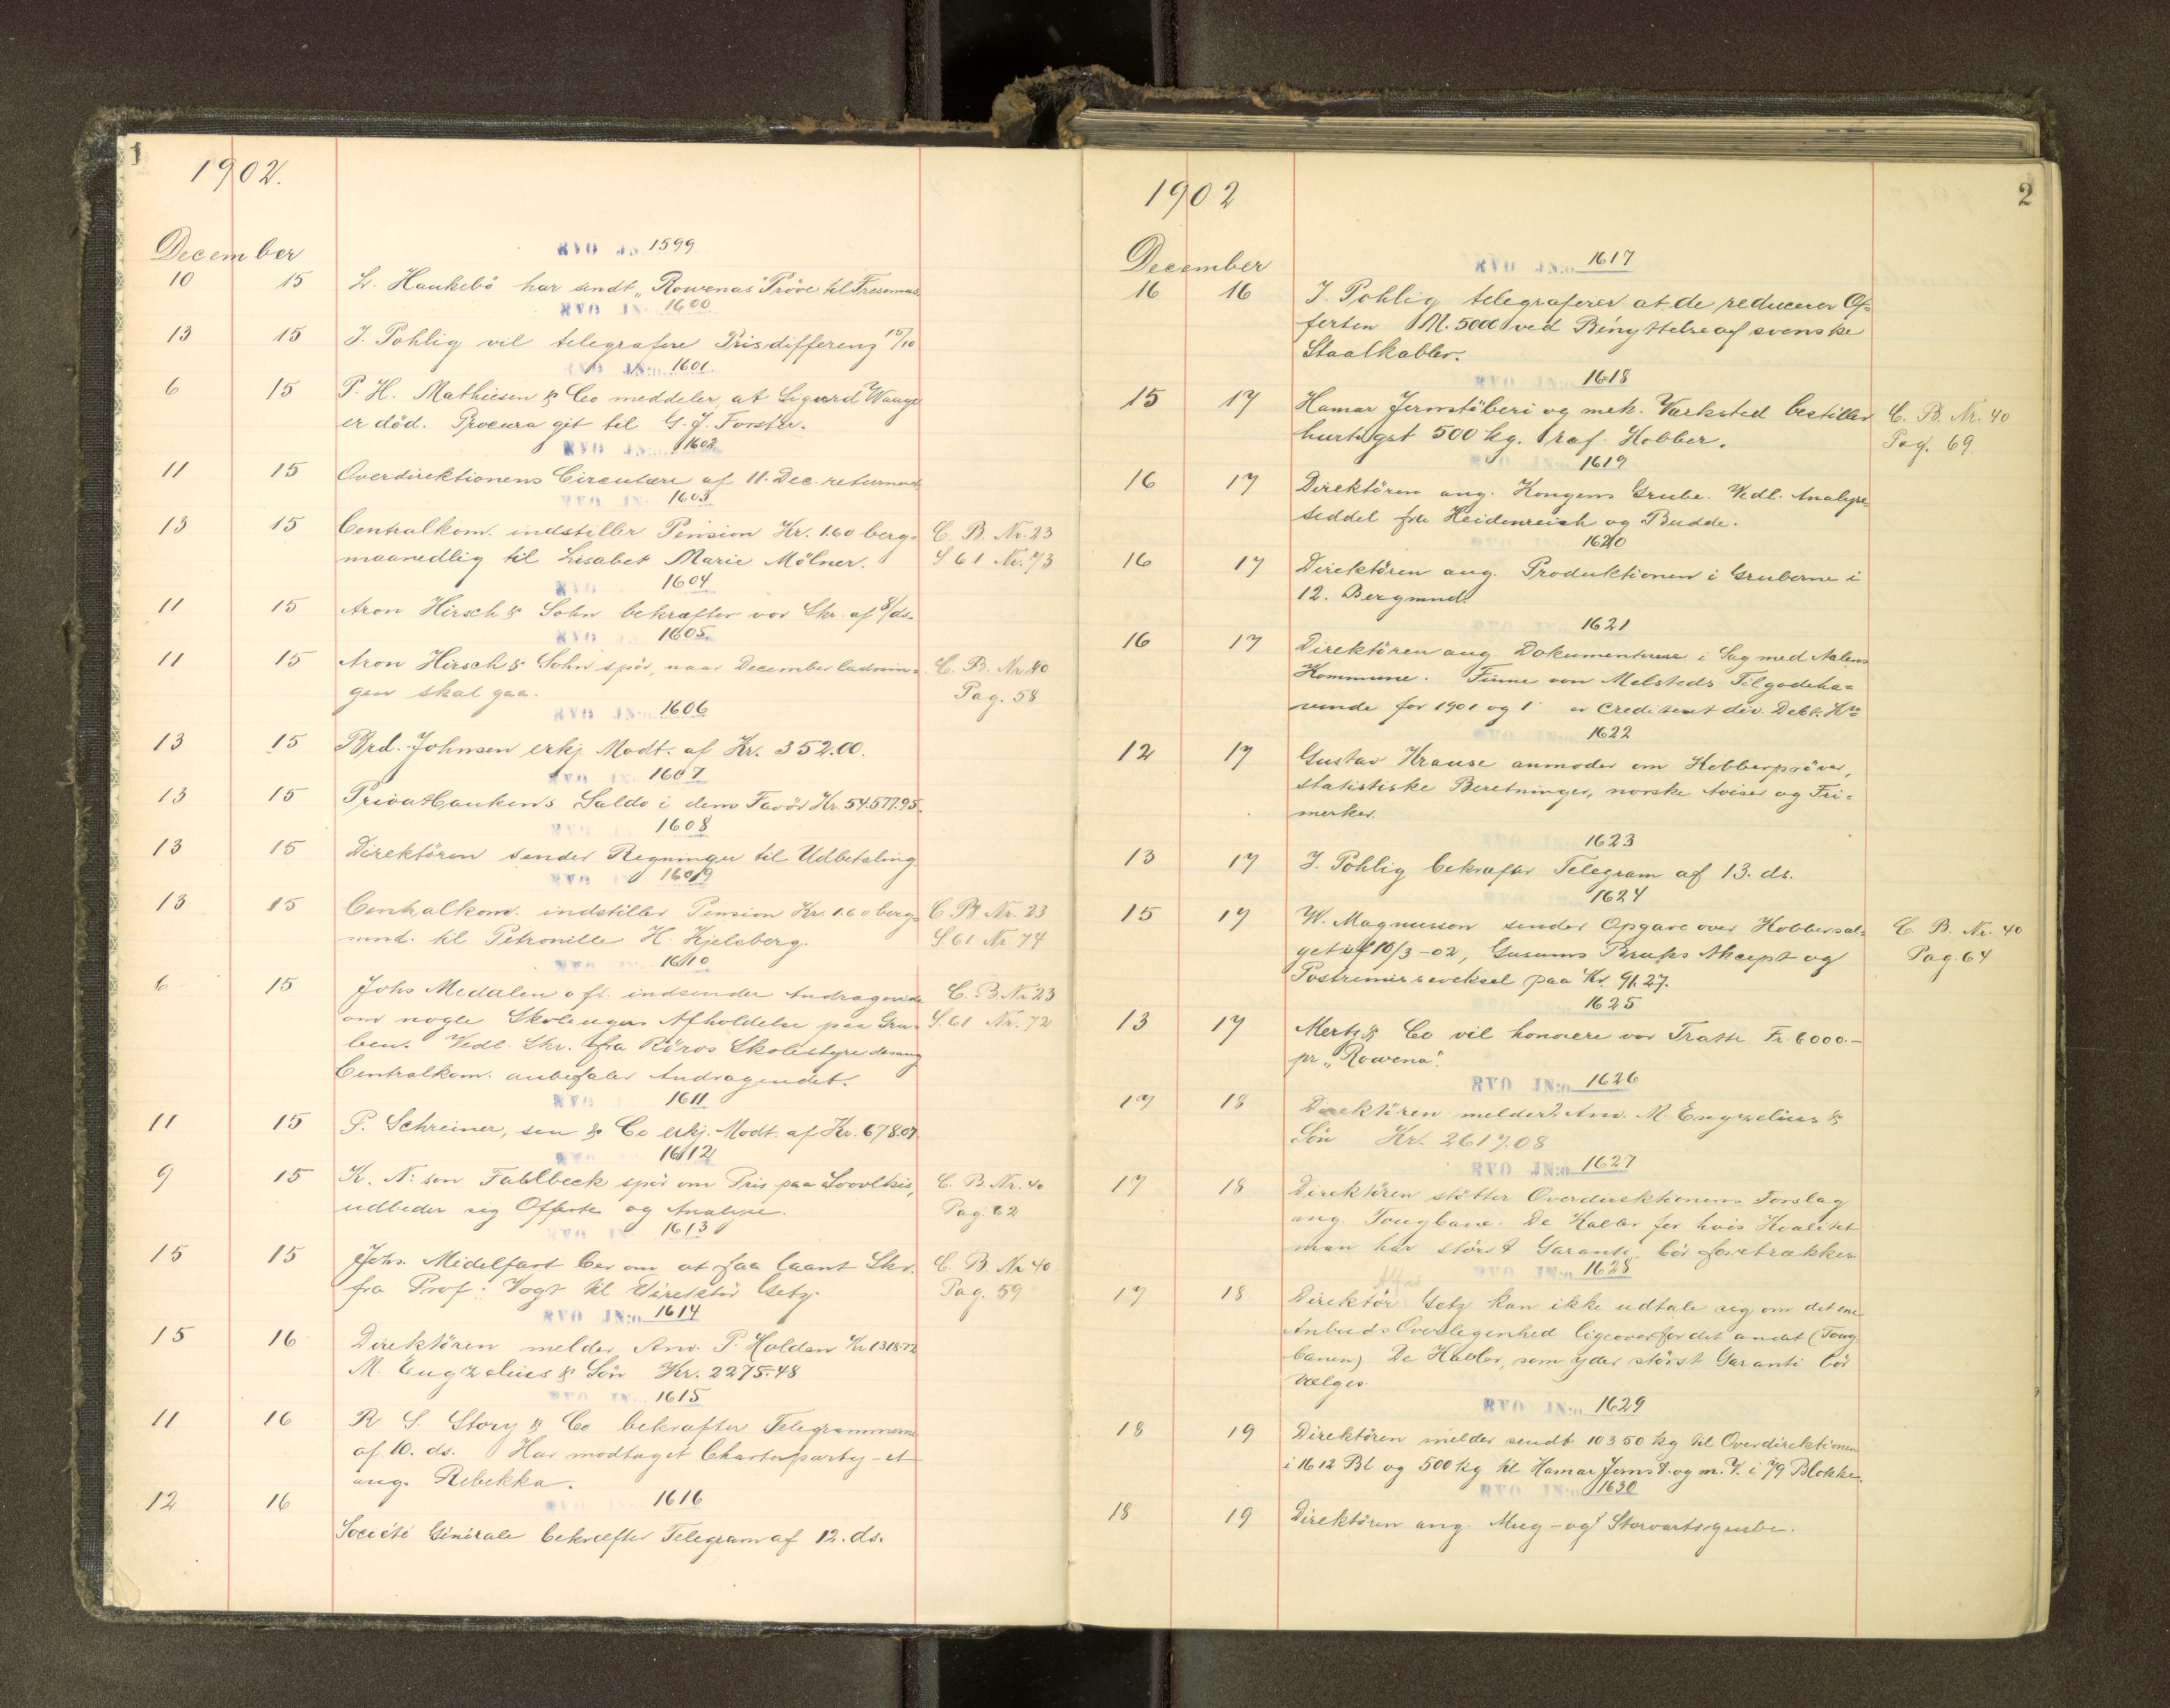 1
1902.
December
RVO JN: 1599
10 15 L. Haukebö har sendt "Rowenas" Pröve til
RVO JN: 1600
13 15 J. Pohlig vil telegrafere Prisdifferenz 15/10
RVO JN:o 1601
6 15 P. H. Mathiesen & Co meddeler, at Sigurd Waage
er död. Procura git til G. J. Forster.
RVO JN:o 1602
11 15 Overdirektionens Circulære af 11. Dec. returneret
RVO JN: 1603
13 15 Centralkom. indstiller Pension Kr. 1.60 berg- C. B. Nr. 23
maanedlig til Lisabet Marie Mölner. S 61 Nr. 73
RVO 1604
11 15 Aron Hirsch & Sohn bekræfter vor Skr. af 8/ds.
RVO 1605
11 15 Aron Hirsch & Sohn spör, naar Decemberladnin- C. B. Nr. 40
gen skal gaa. Pag. 58
RVO JN:o 1606
13 15 Brd. Johnsen erkj. Modt. af Kr. 352.00.
RVO JN: 1607
13 15 Privatbankens Saldo i dens Favör Kr. 54.577.95.
RVO 1608
13 15 Direktören sender Regninger til Udbetaling.
RVO 1609
13 15 Centralkom. indstiller Pension Kr. 1.60 berg- C B Nr. 23
mnd. til Petronille H. Kjelsberg. S 61 Nr. 74
RVO 1610
6 15 Johs Medalen o fl. indsender Andragende C. B. Nr 23
om nogle Skolaugers Afholdelse paa Gru- S. 61 Nr. 72
ben. Vedl. Skr. fra Röros Skolestyre desang
Centralkom. anbefaler Andragendet.
RVO 1611
11 15 P. Schreiner, sen & Co erkj. Modt. af Kr. 678.07
RVO 1612
9 15 K. N:son Fahlbeck spör om Pris paa C. B. Nr. 40
udbeder sig Offerte og Analyse. Pag. 62
RVO 1613
15 15 Johs. Midelfart ber om at faa laant Skr. C. B. Nr 40
fra Prof. Vogt til Direktör Getz. Pag. 59
RVO JN:o 1614
15 16 Direktören melder Anv. P. Holden Kr 1318.72
M. Engzelius & Sön Kr. 2275.48
RVO JN: 1615
11 16 R S. Story & Co bekræfter Telegrammerne
af 10. ds. Har modtaget Charterparty-et
ang. Rebekka.
1616
12 16 Société Générale bekræfter Telegram af 12. ds.
2
1902
December
RVO JN:o 1617
16 16 J. Pohlig telegraferer at de reducerer Of-
ferten M. 5000 ved Benyttelse af svenske
Staalkabler.
RVO JN:o 1618
15 17 Hamar Jernstöberi og mek. Værksted bestiller C. B. Nr. 40
hurtigst 500 kg. raf. Kobber. Pag. 69
RVO JN:o 1619
16 17 Direktören ang. Kongens Grube. Vedl. Analyse-
seddel fra Heidenreich og Budde.
1620
16 17 Direktören ang. Produktionen i Gruberne i
12. Bergmnd.
1621
16 17 Direktören ang. Dokumenterne i Sag med Aalens
Kommune. Finne von Melsteds Tilgodeha-
vende for 1901 og er Crediteret div. Debt. Kto
1622
12 17 Gustav Krause anmoder om Kobberpröver,
statistiske Beretninger, norske Aviser og Fri-
merker.
1623
13 17 J. Pohlig bekræfter Telegram af 13. ds.
1624
15 17 W. Magnusson sender Opgave over Kobbersal- C. B. Nr. 40
get af 10/3-02, Gusums Bruks Akcept og Pag. 64
Postremissveksel paa Kr. 91.27.
1625
13 17 Mertz & Co vil honorere vor Tratte Fr. 6000.-
pr. "Rowena".
RVO JN:o 1626
17 18 Direktören melder Anv. M. Engzelius &
Sön Kr. 2617.08
RVO JN:o 1627
17 18 Direktören stötter Overdirektionens Forslag
ang. Tougbane. De Kabler for hvis Kvalitet
man har störst Garanti bör foretrækkes
RVO JN:o 1628
17 18 Direktör Getz kan ikke udtale sig om det ene
Anbuds Overlegenhed ligeoverfor det andet (Toug-
banen) De Kabler, som yder störst Garanti bör
vælges.
RVO JN:o 1629
18 19 Direktören melder sendt 10350 kg til Overdirektionen
i 1612 Bl. og 500 kg til Hamar Jernst. og m. V. i 79 Blokke.
RVO JN:o 1630
18 19 Direktören ang. Mug- og Storvartsgrube.